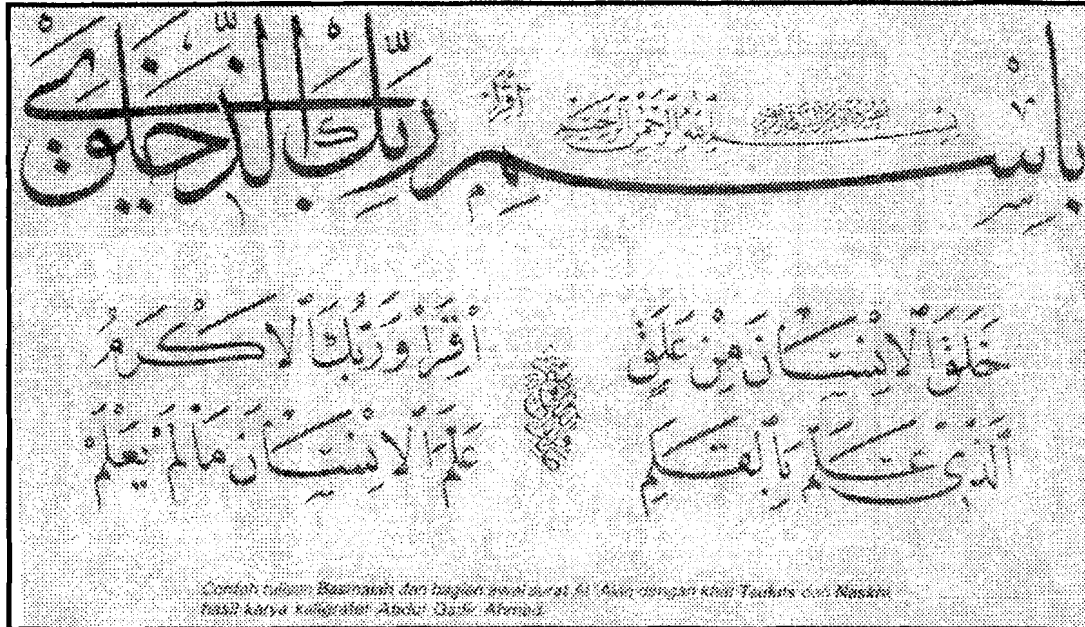 اقْرَأْ بِاسْمِ رَبِّكَ الَّذِي خَلَقَ
خَلَقَ الْاِنْسَانَ مِنْ عَلَقٍ اِقْرَأْ وَرَبُّكَ الْاَكْرَمُ
الَّذِي عَلَّمَ بِالْقَلَمِ عَلَّمَ الْاِنْسَانَ مَا لَمْ يَعْلَمْ
Contoh tulisan Basmalah dan bagian awal surat Al 'Alaq dengan khat Tsuluts dan Naskhi
hasil karya kaligrafer Abdul Qadir Ahmed.